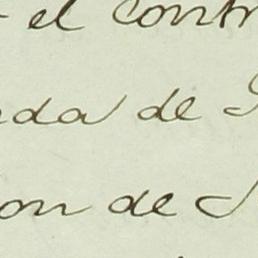 el contr
da de
on de